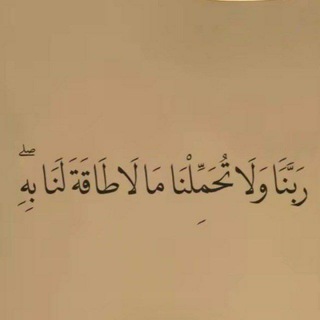 رَبَّنَا وَلَا تُحَمِّلْنَا مَا لَا طَاقَةَ لَنَا بِهِۦۖ